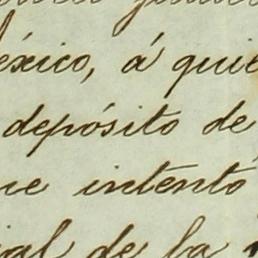 éxico, á quie
depósito de
ue intentó
ial de la